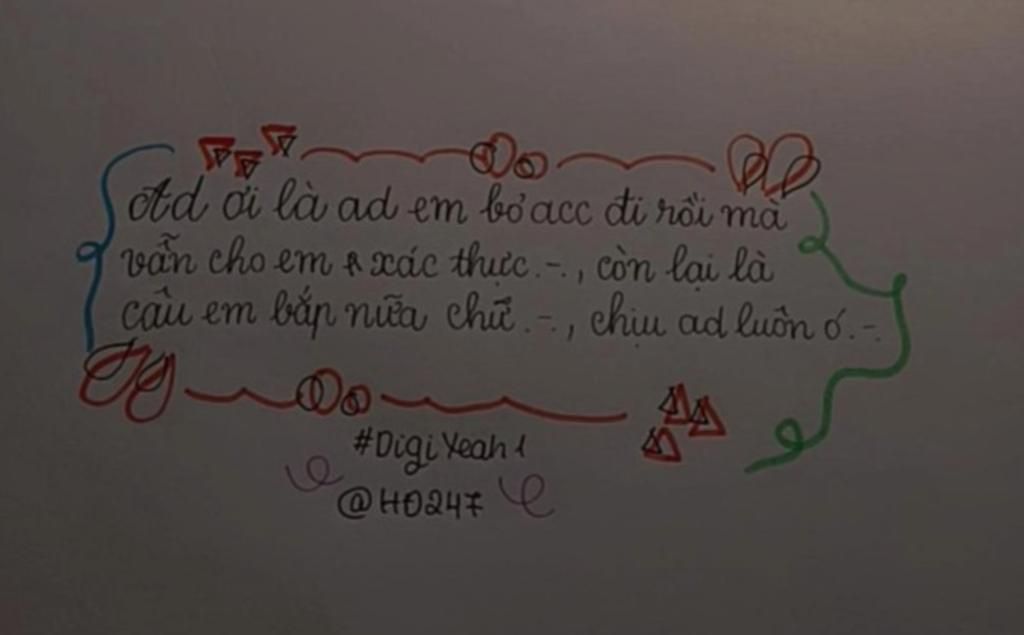 Ad ơi là ad em bỏ acc đi rồi mà
vẫn cho em xác thực.-., còn lại là
câu em bắp nữa chữ.-., chịu ad luôn ó.-.
#DigiYeah1
@HD247